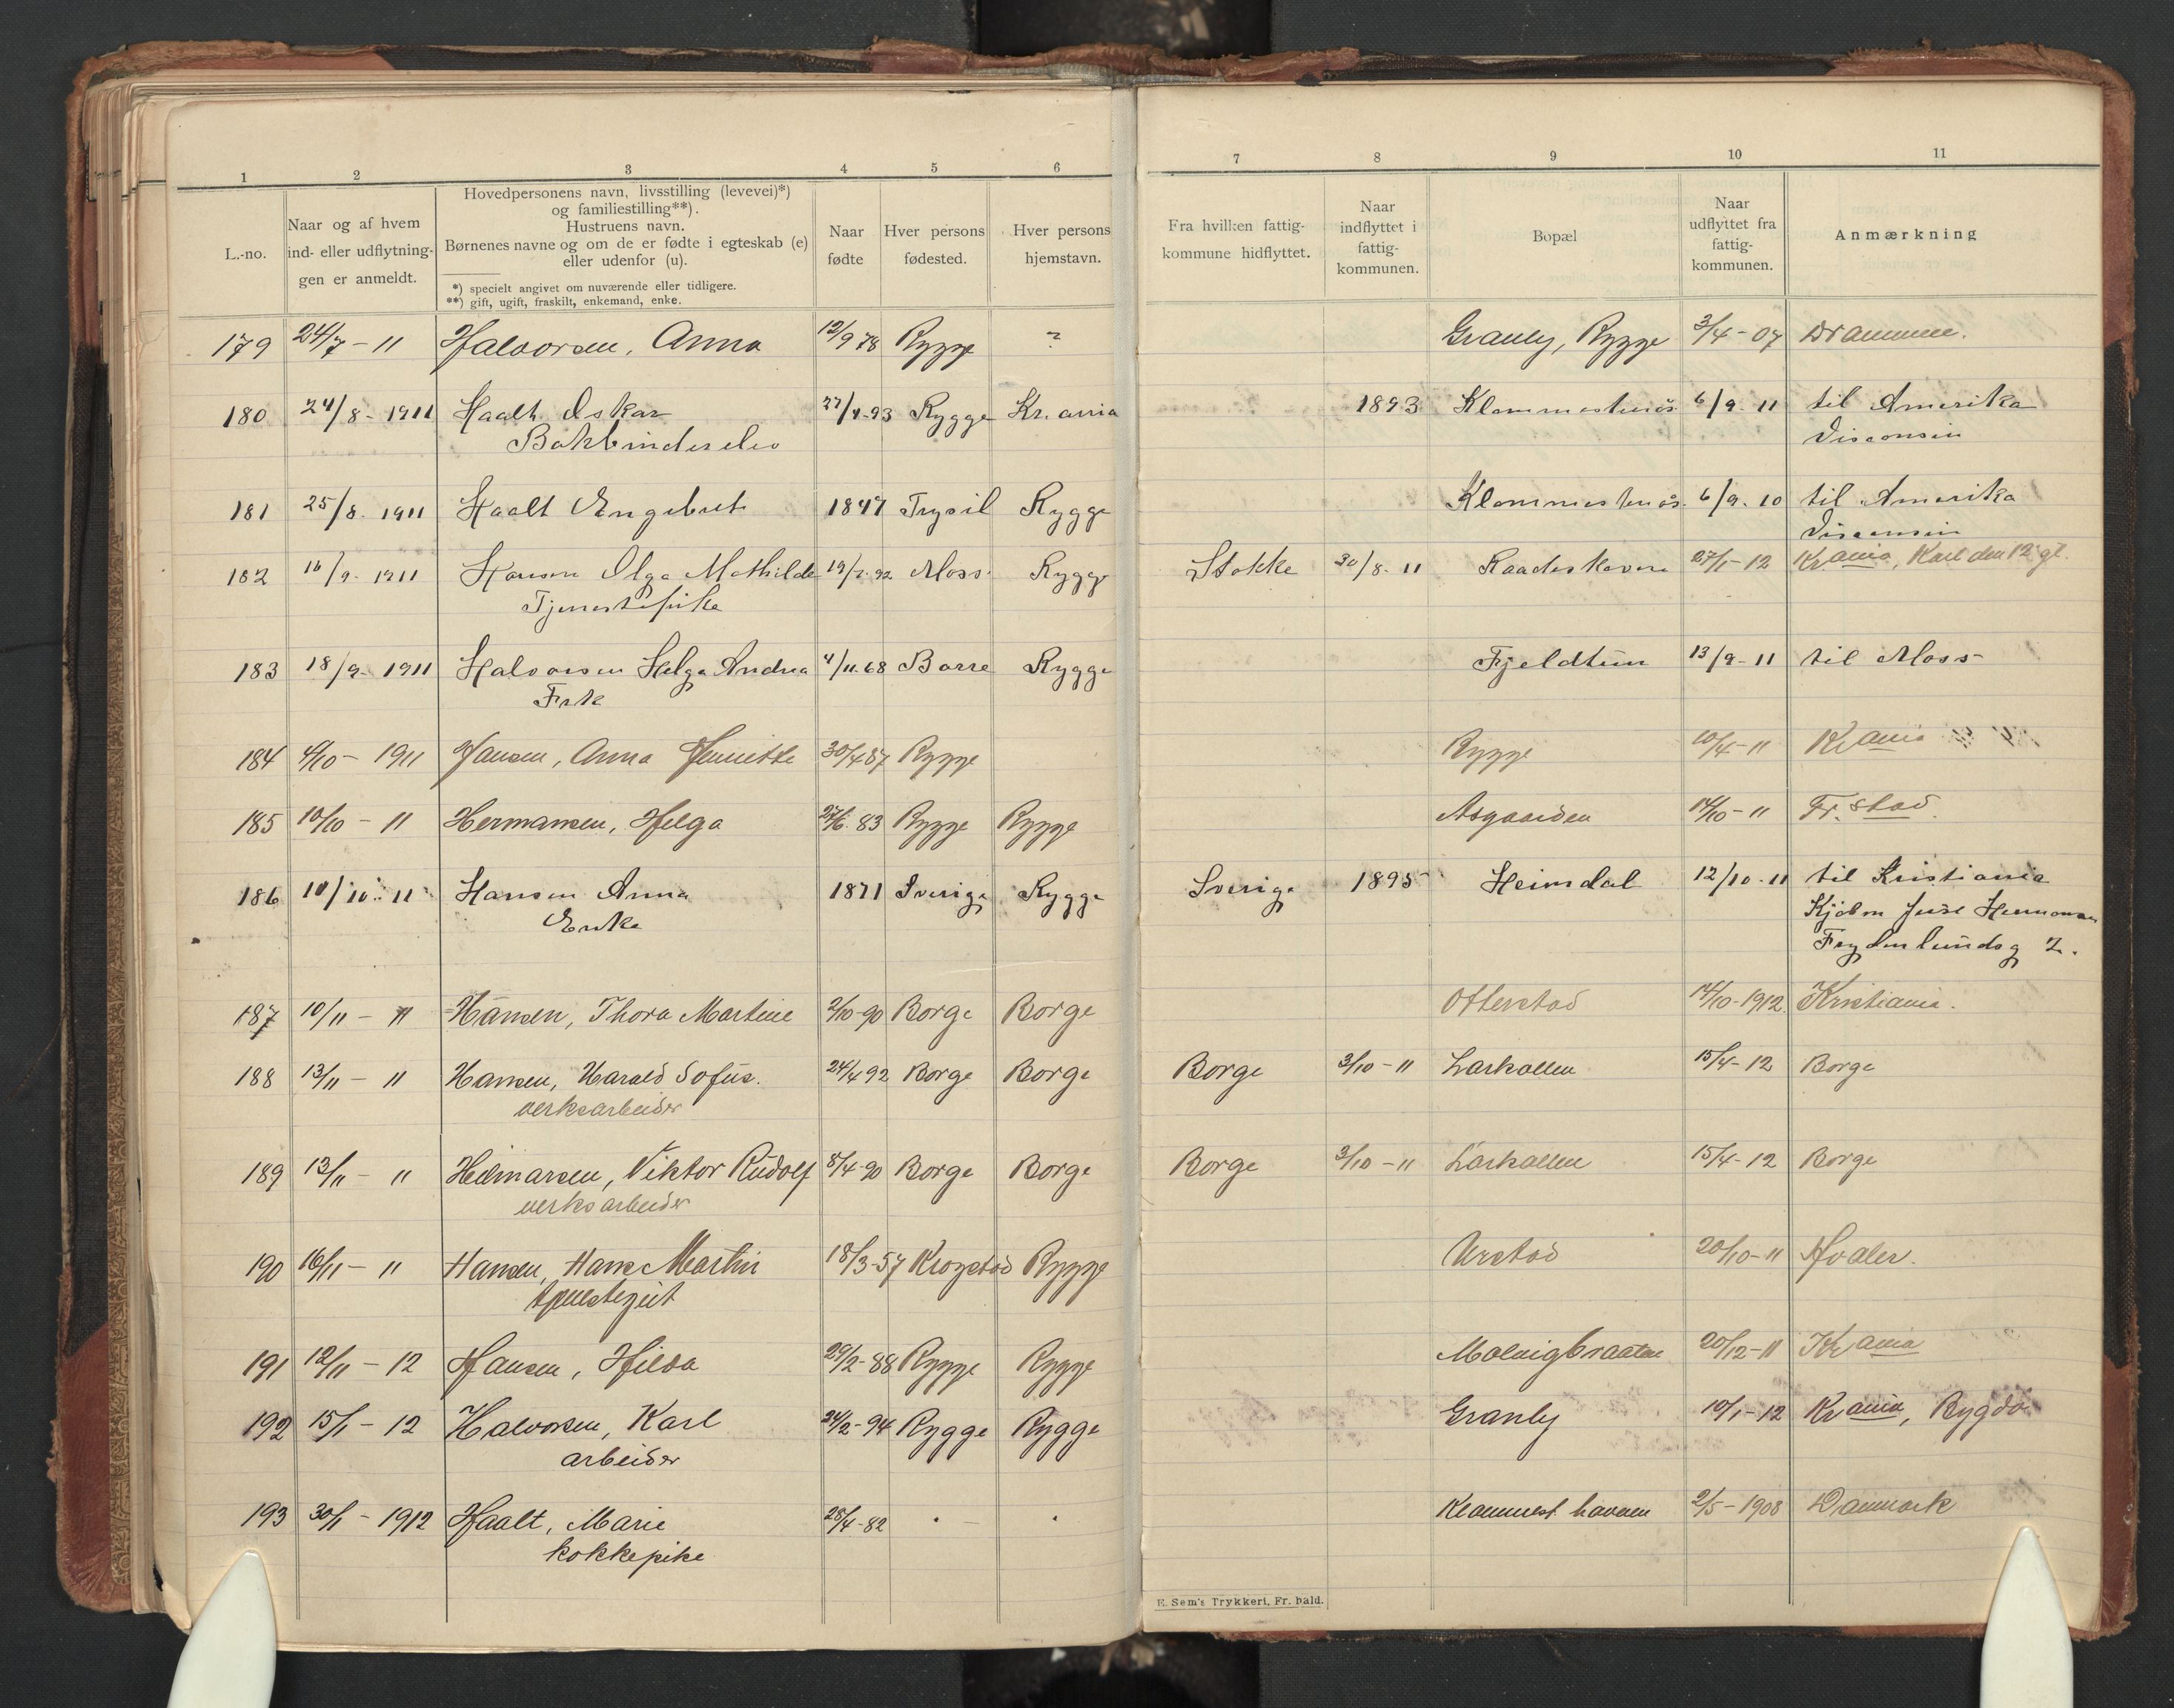 1 2 3 4 5 6 7 8 9 10 11
L.-no.
Naar og af hvem
ind- eller udflytning-
gen er anmeldt.
Hovedpersonens navn, livsstilling (levevei)*)
og familiestilling**).
Hustruens navn.
Børnenes navne og om de er fødte i egteskab (e)
eller udenfor (u).
*) specielt angivet om nuværende eller tidligere.
**) gift, ugift, fraskilt, enkemand, enke.
Naar
fødte
Hver persons
fødested.
Hver persons
hjemstavn.
Fra hvilken fattig-
kommune hidflyttet.
Naar
indflyttet i
fattig-
kommunen.
Bopæl
Naar
udflyttet fra
fattig-
kommunen.
Anmærkning
179 24/7 - 11 Halvorsen, Anna 12/9 78 Rygge ? Granly, Rygge 3/4 - 07 Drammen.
180 24/8 - 1911 Haalt Oskar 27/4-93 Rygge Kr.ania 1893 6/9. 11 til Amerika
Bokbinderelev Visconsin
181 25/8. 1911 Haalt Engebret 1847 Trysil Rygge 6/9. 10 til Amerika
Visconsin
182 16/9. 1911 Hansen Olga Mathilde 92 Moss Rygge Stokke 30/8. 11 27/1-12 Krania, Karl den 12 gt.
Tjenestepike
183 18/9. 1911 Halvorsen Helga Andrea 4/11.68 Borre Rygge Fjeldtun 13/9-11 til Moss
Frk
184 4/10 - 1911 Hansen, Anna Henriette 30/4 87 Rygge Rygge 10/4-11 Krania
185 10/10 - 11 Hermansen, Helga 27/6. 83 Rygge Rygge Asgaarden 14/10-11 Fr.stad.
186 10/10. 11 Hansen Anna 1871 Sverige Rygge Sverige 1895 Heimdal 12/10-11 til Kristiania
Enke
Frydenlundsg 2.
187 10/11 - 11 Hansen, Thora Martine 2/10-90 Borge Borge Otterstad 14/10-1912. Kristiania.
188 13/11 - 11 Hansen, Harald Sofus. 24/4 92 Borge Borge Borge 3/10-11 Larkollen 15/4-12 Borge
verksarbeider
189 13/11 - 11 Hilmarsen, Viktor Rudolf 8/4-90 Borge Borge Borge 3/10-11 Larkollen 15/4-12 Borge
verksarbeider
190 16/11 - 11 Hansen, Hans Martin 18/3-57 Krogstad Rygge Urstad 20/10-11 Hvaler.
191 12/11 - 12 Hansen, Hilda 29/2-88 Rygge Rygge 20/12-11 Krania
192 15/1 - 12 Halvorsen, Karl 24/2-94 Rygge Rygge Granly 10/1-12 Krania, Bygdø
arbeider
193 30/1 - 1912 Haalt, Marie 28/4-82 Klommest.havnen 2/5-1908 Danmark
kokkepike
E. Sem's Trykkeri, Fr.hald.